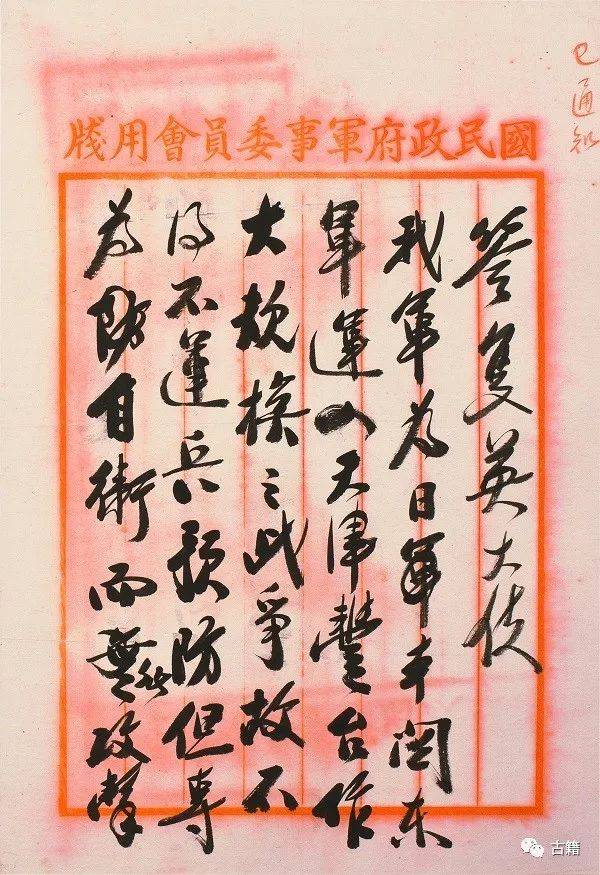 已通知
國民政府軍事委員會用牋
答复英大使
我軍為日軍關东
軍運入天津豐台作
大規模之爭故不
得不運兵預防但專
為防自衛而無攻擊
古籍